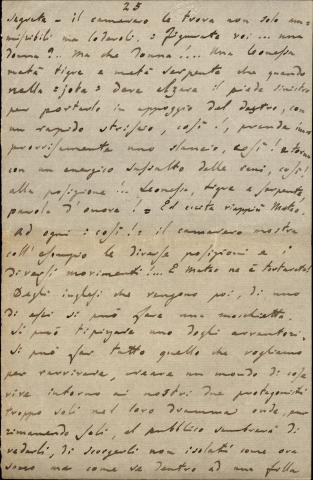 25
segreta - il cameriere le trova non solo am-
missibili ma lodevoli. = Figurate voi ... una
donna?.. Ma che donna!.... Una Leonessa
metà tigre e metà serpente che quando
nella = jota = deve alzare il piede sinistro
per portarlo in appoggio del destro, con
un rapido striscio, così!, prende im-
provvisamente uno slancio, così! e torna
con un energico sussulto delle reni, così!
alla posizione!.. Leonessa, tigre e serpente,
parola d'onore! = Ed eccita viappiù Mateo.
Ad ogni = così! = il cameriere mostra
coll'esempio le diverse posizioni e i
diversi movimenti!... E Mateo ne è torturato!
Degli inglesi che vengono poi, di uno
di essi si può fare una macchietta.
Si può tipizzare uno degli avventori.
Si può far tutto quello che vogliamo
per ravvivare, creare un mondo di cose
vive intorno ai nostri due protagonisti
troppo soli nel loro dramma onde, pur
rimanendo soli, al pubblico sembrerà di
vederli, di scorgerli non isolati come ora
sono ma come se dentro ad una folla